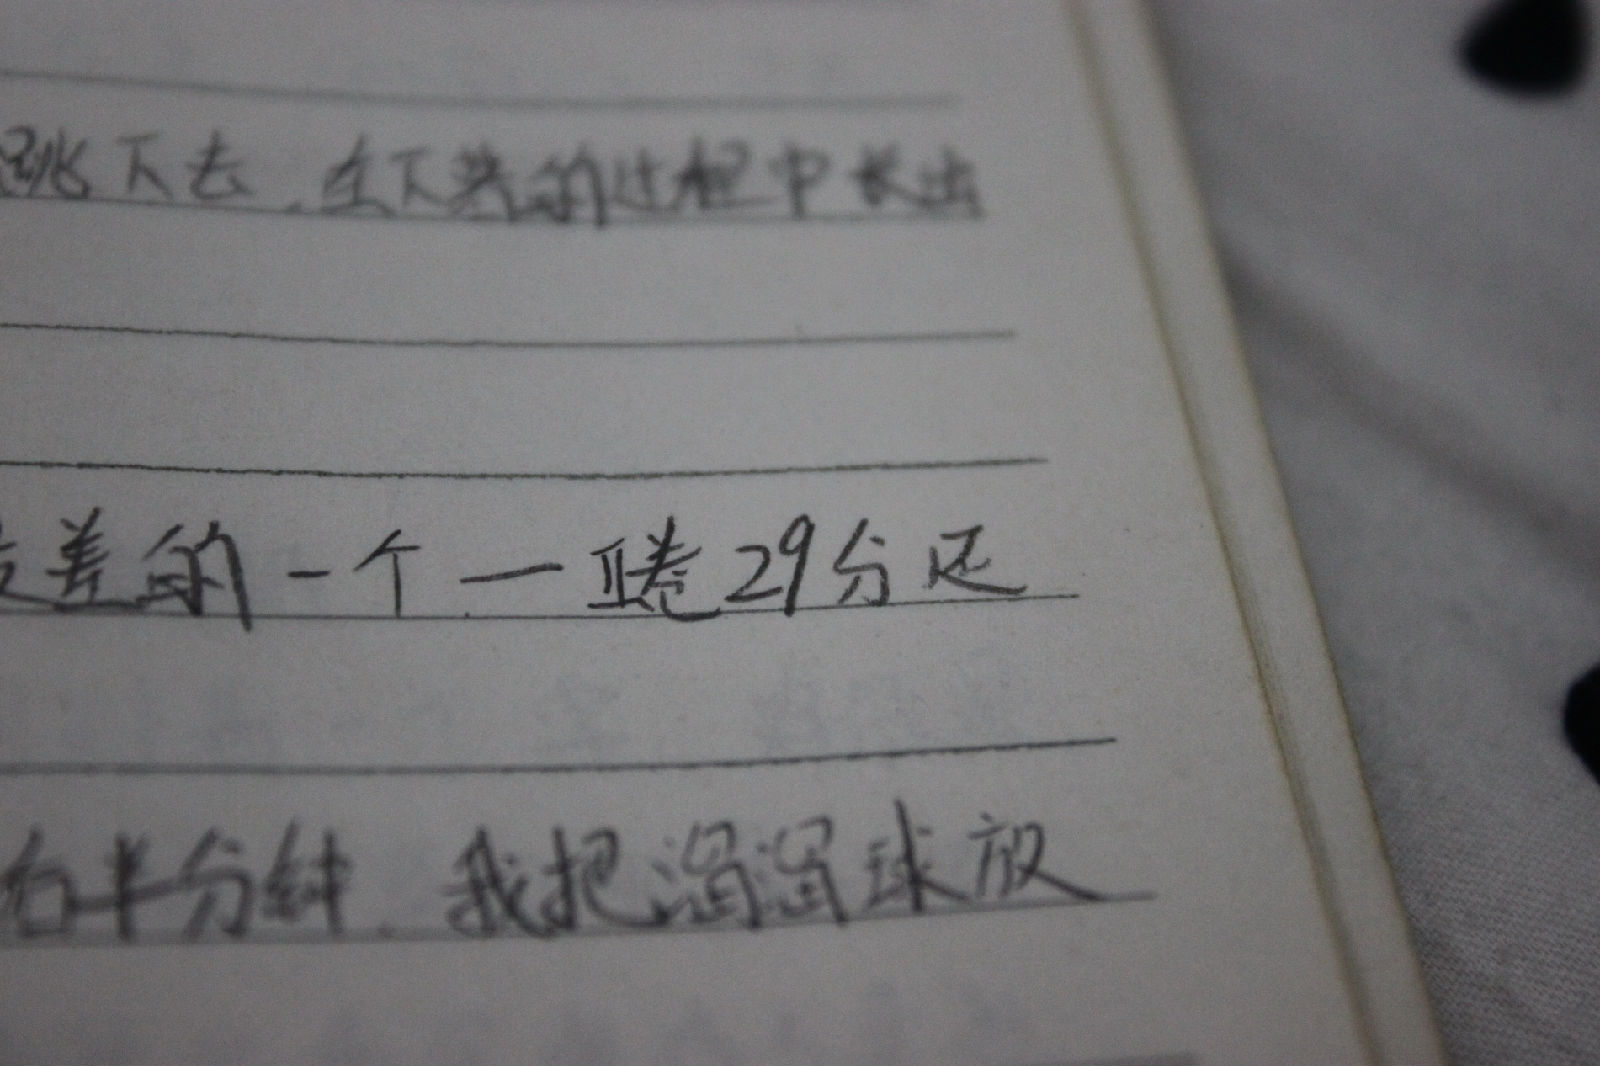 跳下去.在下落的过程中长出
差的一个 一圈29分还
右半分钟.我把溜溜球放